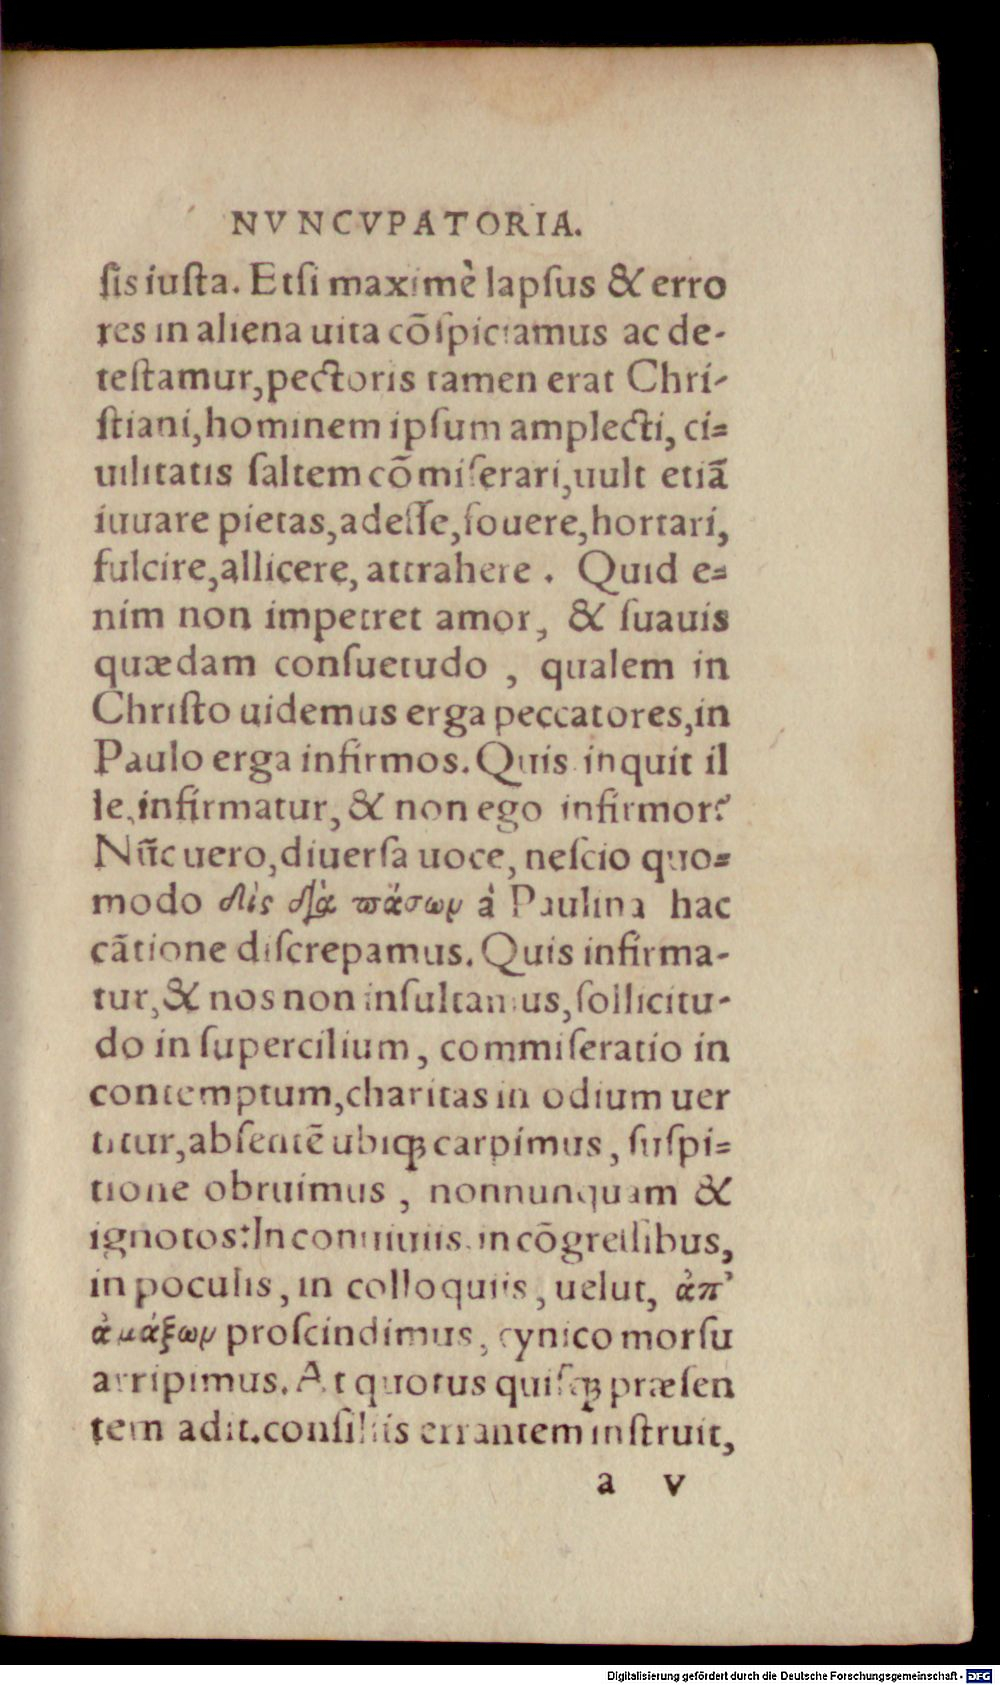 NVNCVPATORIA.
ſis iuſta. Etſi maximè lapſus & erro
res in aliena uita cōſpiciamus ac de-
teſtamur, pectoris tamen erat Chri-
ſtiani, hominem ipſum amplecti, ci=
uilitatis ſaltem cōmiſerari, uult etiā
iuuare pietas, adeſſe, fouere, hortari,
fulcire, allicere, attrahere. Quid e=
nim non impetret amor, & ſuauis
quædam conſuetudo, qualem in
Chriſto uidemus erga peccatores, in
Paulo erga infirmos. Quis inquit il
le, infirmatur, & non ego infirmor?
Nūc uero, diuerſa uoce, neſcio quo=
modo δὶς διὰ πάσων à Paulina hac
cātione diſcrepamus. Quis infirma-
tur, & nos non inſultamus, ſollicitu-
do in ſupercilium, commiſeratio in
contemptum, charitas in odium uer
titur, abſentē ubiqꝫ carpimus, ſuſpi=
tione obruimus, nonnunquam &
ignotos: In conuiuiis, in cōgreſſibus,
in poculis, in colloquiis, uelut, ἀπ’
ἁμάξων proſcindimus, cynico morſu
arripimus. At quotus quiſqꝫ præſen
tem adit, conſiliis errantem inſtruit,
a v
Digitalisierung gefördert durch die Deutsche Forschungsgemeinschaft - DFG